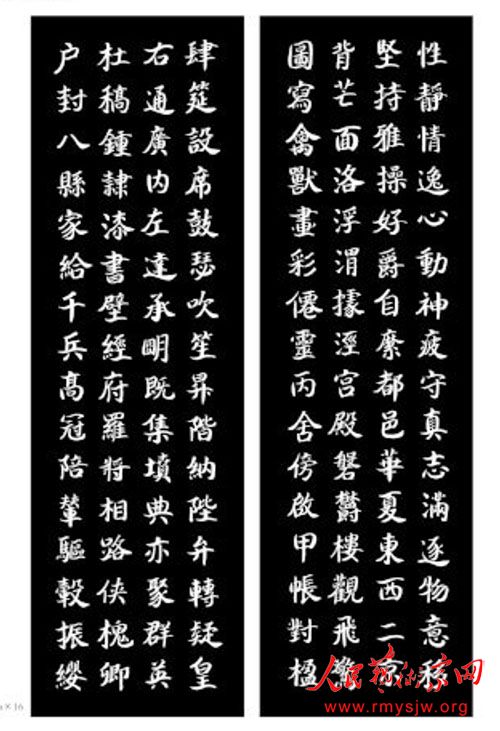 性靜情逸心動神疲守真志滿逐物意移
堅持雅操好爵自縻都邑華夏東西二京
背芒面洛浮渭據涇宮殿磐鬱樓觀飛驚
圖寫禽獸畫彩僊靈丙舍傍啟甲帳對楹
肆筵設席鼓瑟吹笙昇階納陛弁轉疑皇
右通廣內左達承明既集墳典亦聚群英
杜稿鍾隸漆書壁經府羅將相路俠槐卿
户封八縣家給千兵高冠陪輦驅轂振纓
人民藝術家网
www.rmysjw.org
×16